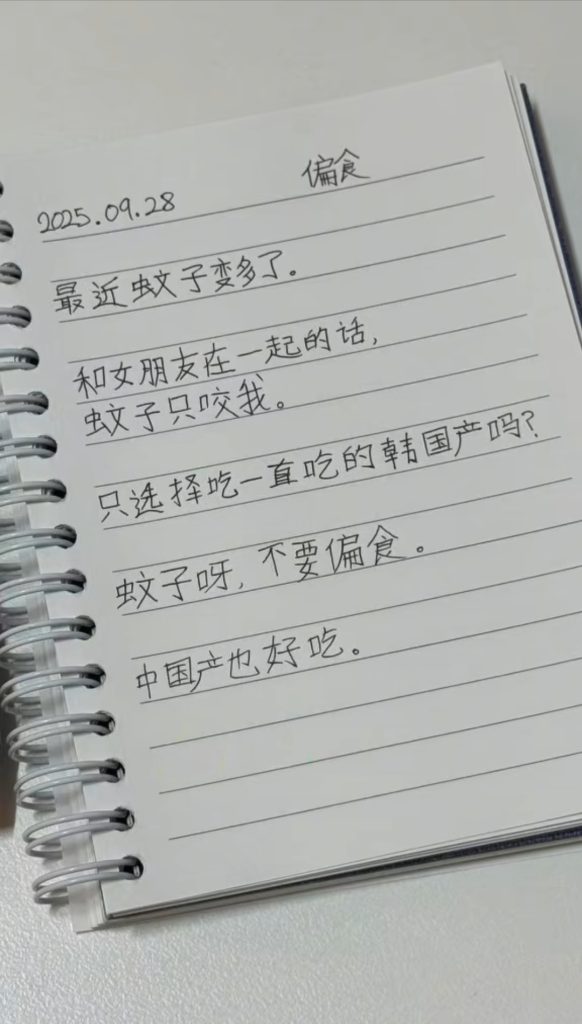 偏食
2025.09.28
最近蚊子变多了。
和女朋友在一起的话,
蚊子只咬我。
只选择吃一直吃的韩国产吗?
蚊子呀,不要偏食。
中国产也好吃。